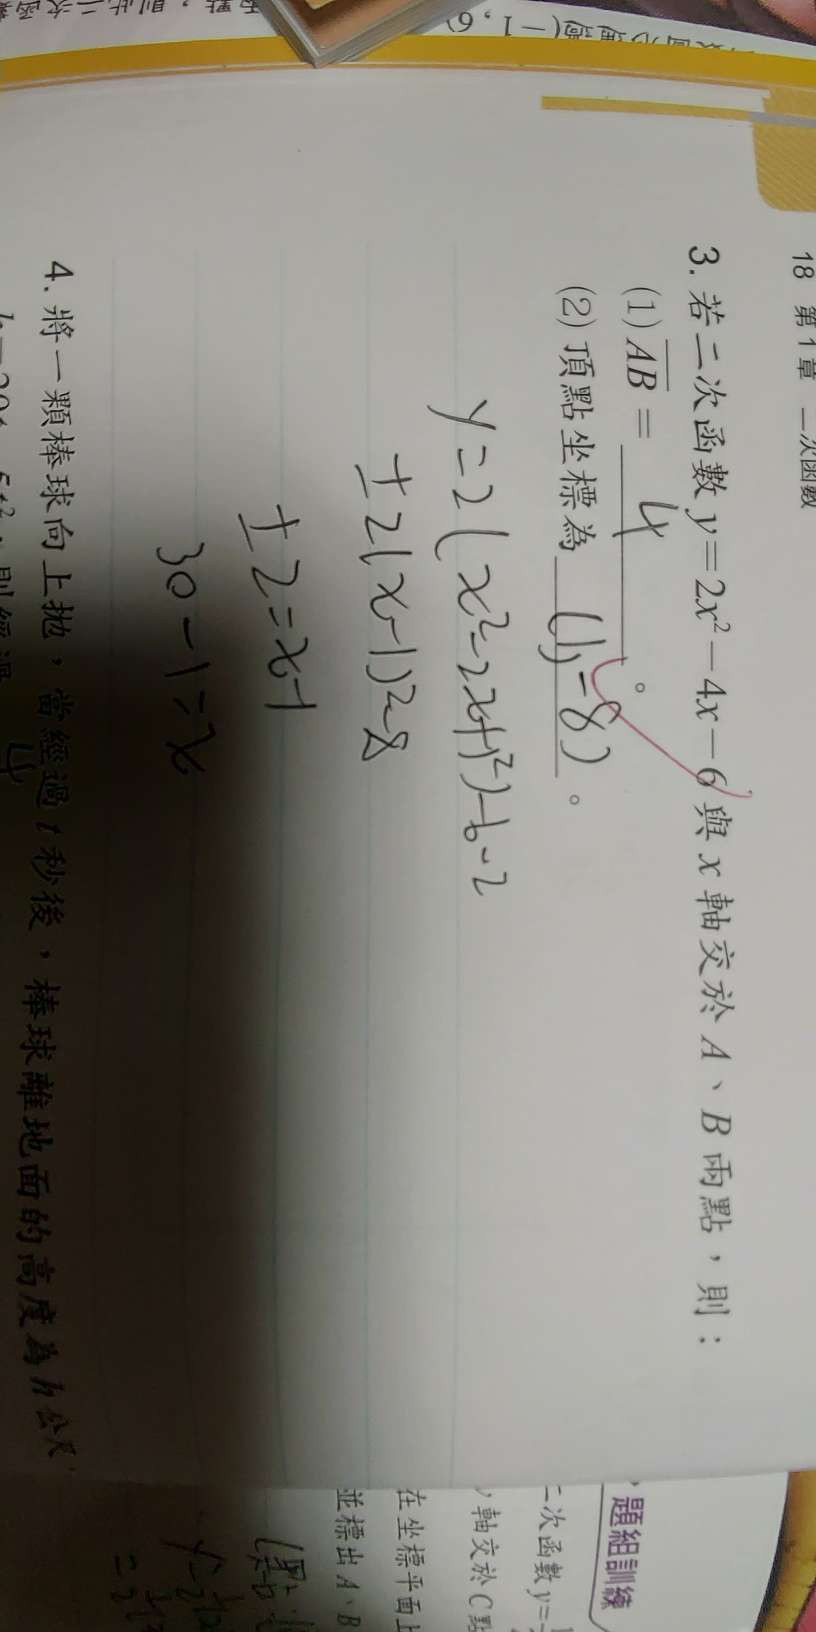 18 第1章 二次函數
3. 若二次函數 y=2x²-4x-6 與 x 軸交於 A、B 兩點，則：
(1) AB = 4 。
(2) 頂點坐標為 (1,-8) 。
y=2(x²-2x+1²)-6-2
±2(x-1)²-8
±2=x-1
30-1=x
4. 將一顆棒球向上拋，當經過 t 秒後，棒球離地面的高度為 h 公尺
題組訓練
二次函數 y=
軸交於 C 點
在坐標平面上
並標出 A、B
(-1,6)